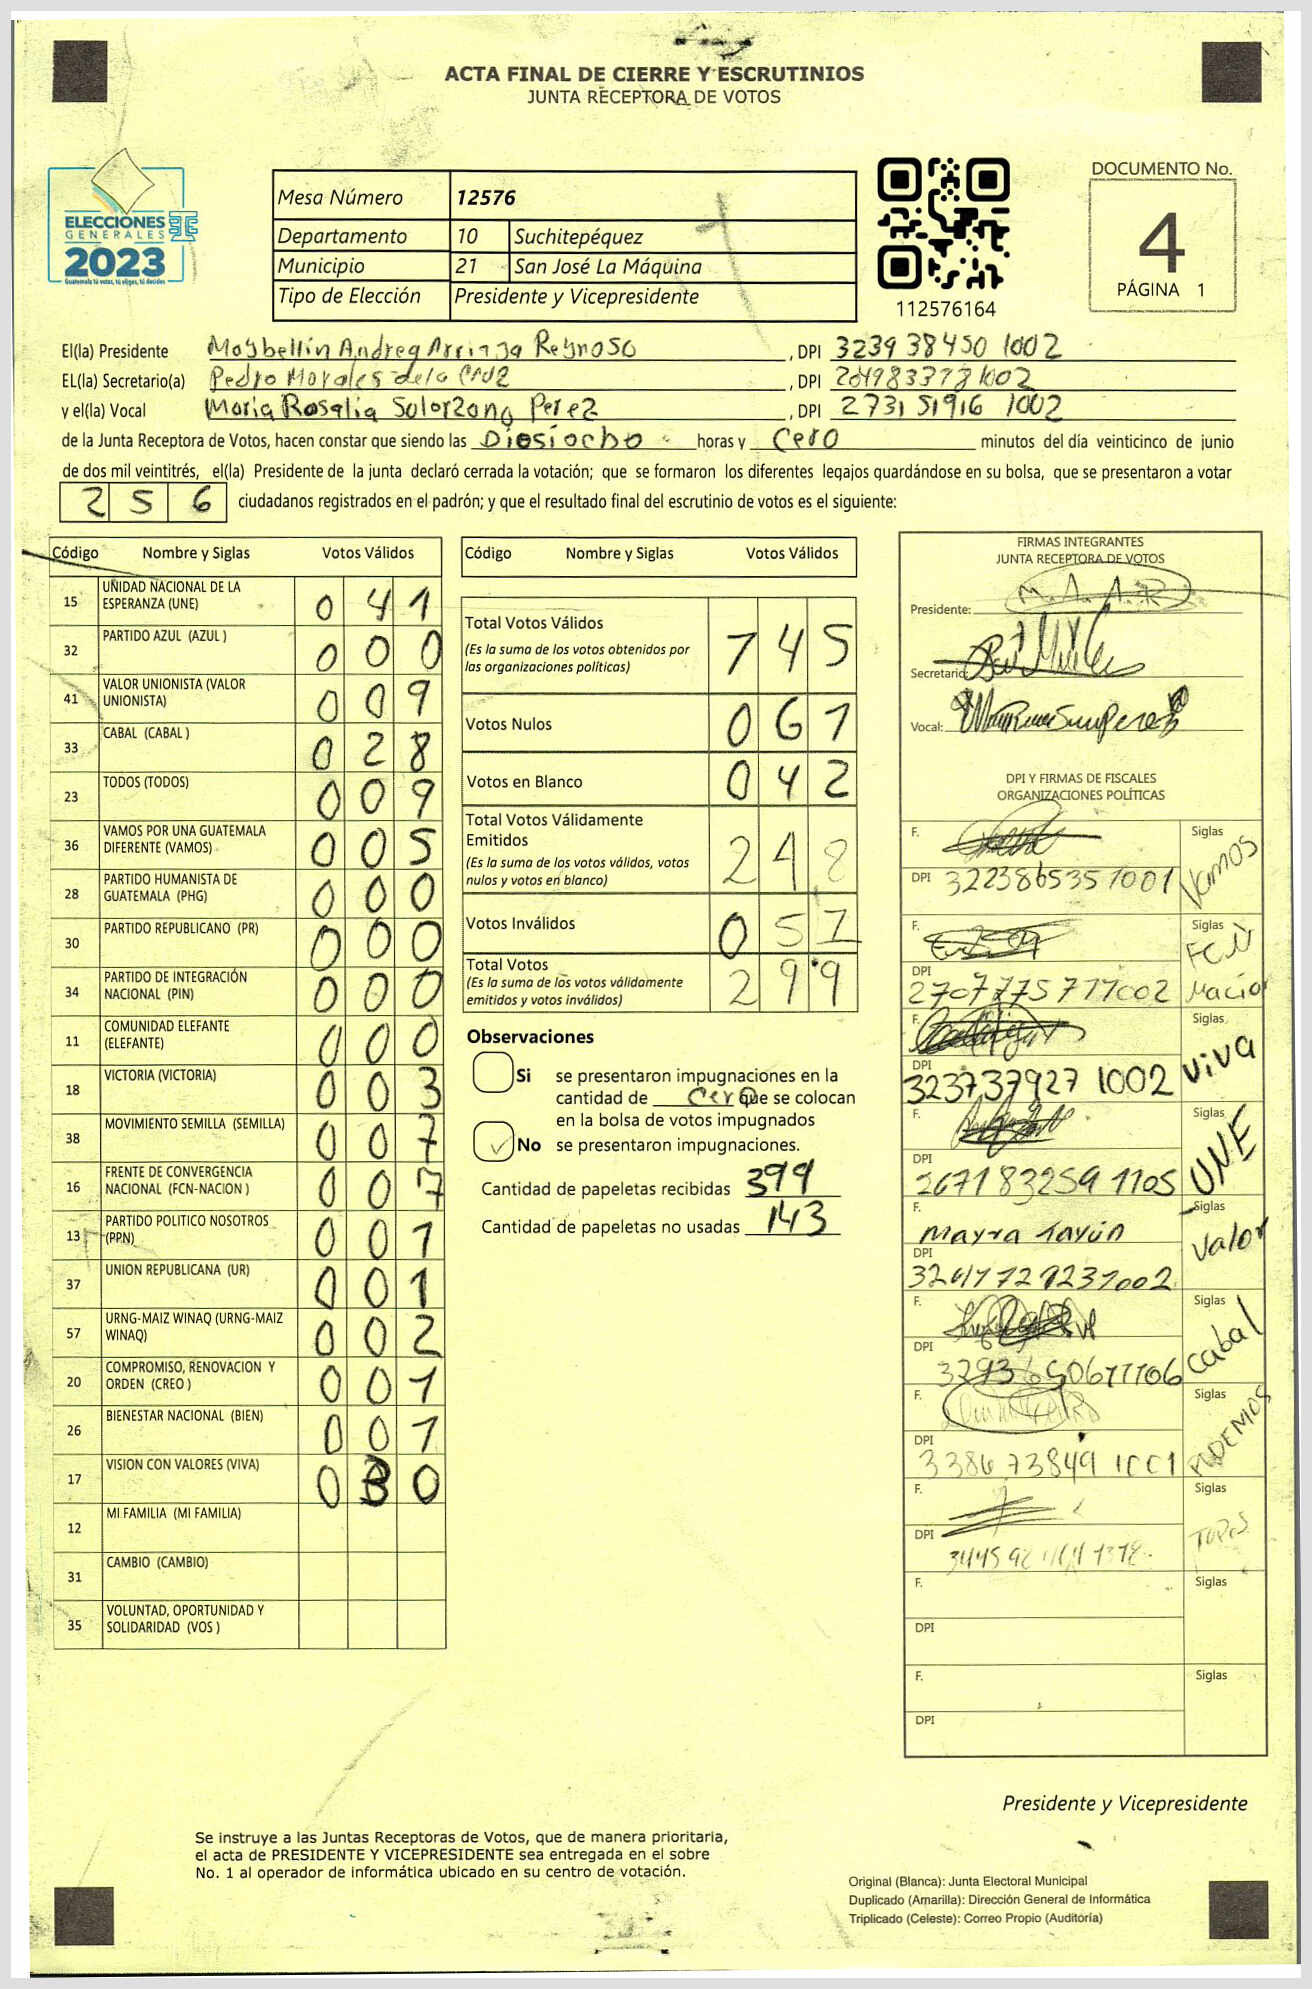 ACTA FINAL DE CIERRE Y ESCRUTINIOS
JUNTA RECEPTORA DE VOTOS
ELECCIONES
GENERALES
2023
Guatemala tú votas, tú eliges, tú decides
Mesa Número 12576
Departamento 10 Suchitepéquez
Municipio 21 San José La Máquina
Tipo de Elección Presidente y Vicepresidente
112576164
DOCUMENTO No.
4
PÁGINA 1
El(la) Presidente Maybellin Andrea Arriaga Reynoso, DPI 3239 38450 1002
EL(la) Secretario(a) Pedro Morales de la Cruz, DPI 2049833781002
y el(la) Vocal Maria Rosalia Solorzano Perez, DPI 2731 51916 1002
de la Junta Receptora de Votos, hacen constar que siendo las Diesiocho horas y Cero minutos del día veinticinco de junio
de dos mil veintitrés, el(la) Presidente de la junta declaró cerrada la votación; que se formaron los diferentes legajos guardándose en su bolsa, que se presentaron a votar
256 ciudadanos registrados en el padrón; y que el resultado final del escrutinio de votos es el siguiente:
Código Nombre y Siglas Votos Válidos
15 UNIDAD NACIONAL DE LA ESPERANZA (UNE) 041
32 PARTIDO AZUL (AZUL ) 000
41 VALOR UNIONISTA (VALOR UNIONISTA) 009
33 CABAL (CABAL ) 028
23 TODOS (TODOS) 009
36 VAMOS POR UNA GUATEMALA DIFERENTE (VAMOS) 005
28 PARTIDO HUMANISTA DE GUATEMALA (PHG) 000
30 PARTIDO REPUBLICANO (PR) 000
34 PARTIDO DE INTEGRACIÓN NACIONAL (PIN) 000
11 COMUNIDAD ELEFANTE (ELEFANTE) 000
18 VICTORIA (VICTORIA) 003
38 MOVIMIENTO SEMILLA (SEMILLA) 007
16 FRENTE DE CONVERGENCIA NACIONAL (FCN-NACION ) 007
13 PARTIDO POLITICO NOSOTROS (PPN) 001
37 UNION REPUBLICANA (UR) 001
57 URNG-MAIZ WINAQ (URNG-MAIZ WINAQ) 002
20 COMPROMISO, RENOVACION Y ORDEN (CREO ) 001
26 BIENESTAR NACIONAL (BIEN) 001
17 VISION CON VALORES (VIVA) 030
12 MI FAMILIA (MI FAMILIA)
31 CAMBIO (CAMBIO)
35 VOLUNTAD, OPORTUNIDAD Y SOLIDARIDAD (VOS )
Código Nombre y Siglas Votos Válidos
Total Votos Válidos 745
(Es la suma de los votos obtenidos por
las organizaciones políticas)
Votos Nulos 061
Votos en Blanco 042
Total Votos Válidamente
Emitidos 248
(Es la suma de los votos válidos, votos
nulos y votos en blanco)
Votos Inválidos 051
Total Votos 299
(Es la suma de los votos válidamente
emitidos y votos inválidos)
Observaciones
Si se presentaron impugnaciones en la
cantidad de cero que se colocan
en la bolsa de votos impugnados
No se presentaron impugnaciones.
Cantidad de papeletas recibidas 399
Cantidad de papeletas no usadas 143
FIRMAS INTEGRANTES
JUNTA RECEPTORA DE VOTOS
Presidente: M. A. A. R
Secretario:
Vocal:
DPI Y FIRMAS DE FISCALES
ORGANIZACIONES POLÍTICAS
F. Siglas Vamos
DPI 3223865351001
F. Siglas FCN Nación
DPI 2707775771002
F. Siglas Viva
DPI 323737927 1002
F. Siglas UNE
DPI 2671 83259 1105
F. Mayra Tayún Siglas Valor
DPI
F. Siglas Cabal
DPI
F. Siglas PODEMOS
DPI 3386 73849 1001
F. Siglas Todos
DPI
F. Siglas
DPI
F. Siglas
DPI
Presidente y Vicepresidente
Se instruye a las Juntas Receptoras de Votos, que de manera prioritaria,
el acta de PRESIDENTE Y VICEPRESIDENTE sea entregada en el sobre
No. 1 al operador de informática ubicado en su centro de votación.
Original (Blanca): Junta Electoral Municipal
Duplicado (Amarilla): Dirección General de Informática
Triplicado (Celeste): Correo Propio (Auditoría)